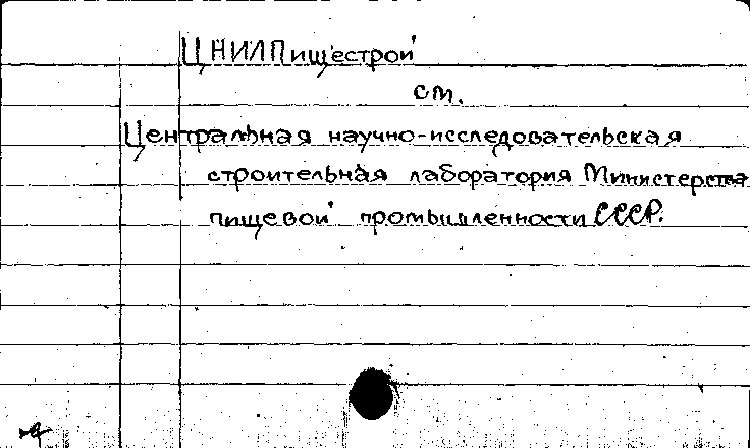 ЦНИЛПищестрой
см.
Центральная научно-исследовательская
строительная лаборатория Министерства
пищевой промышленности СССР.